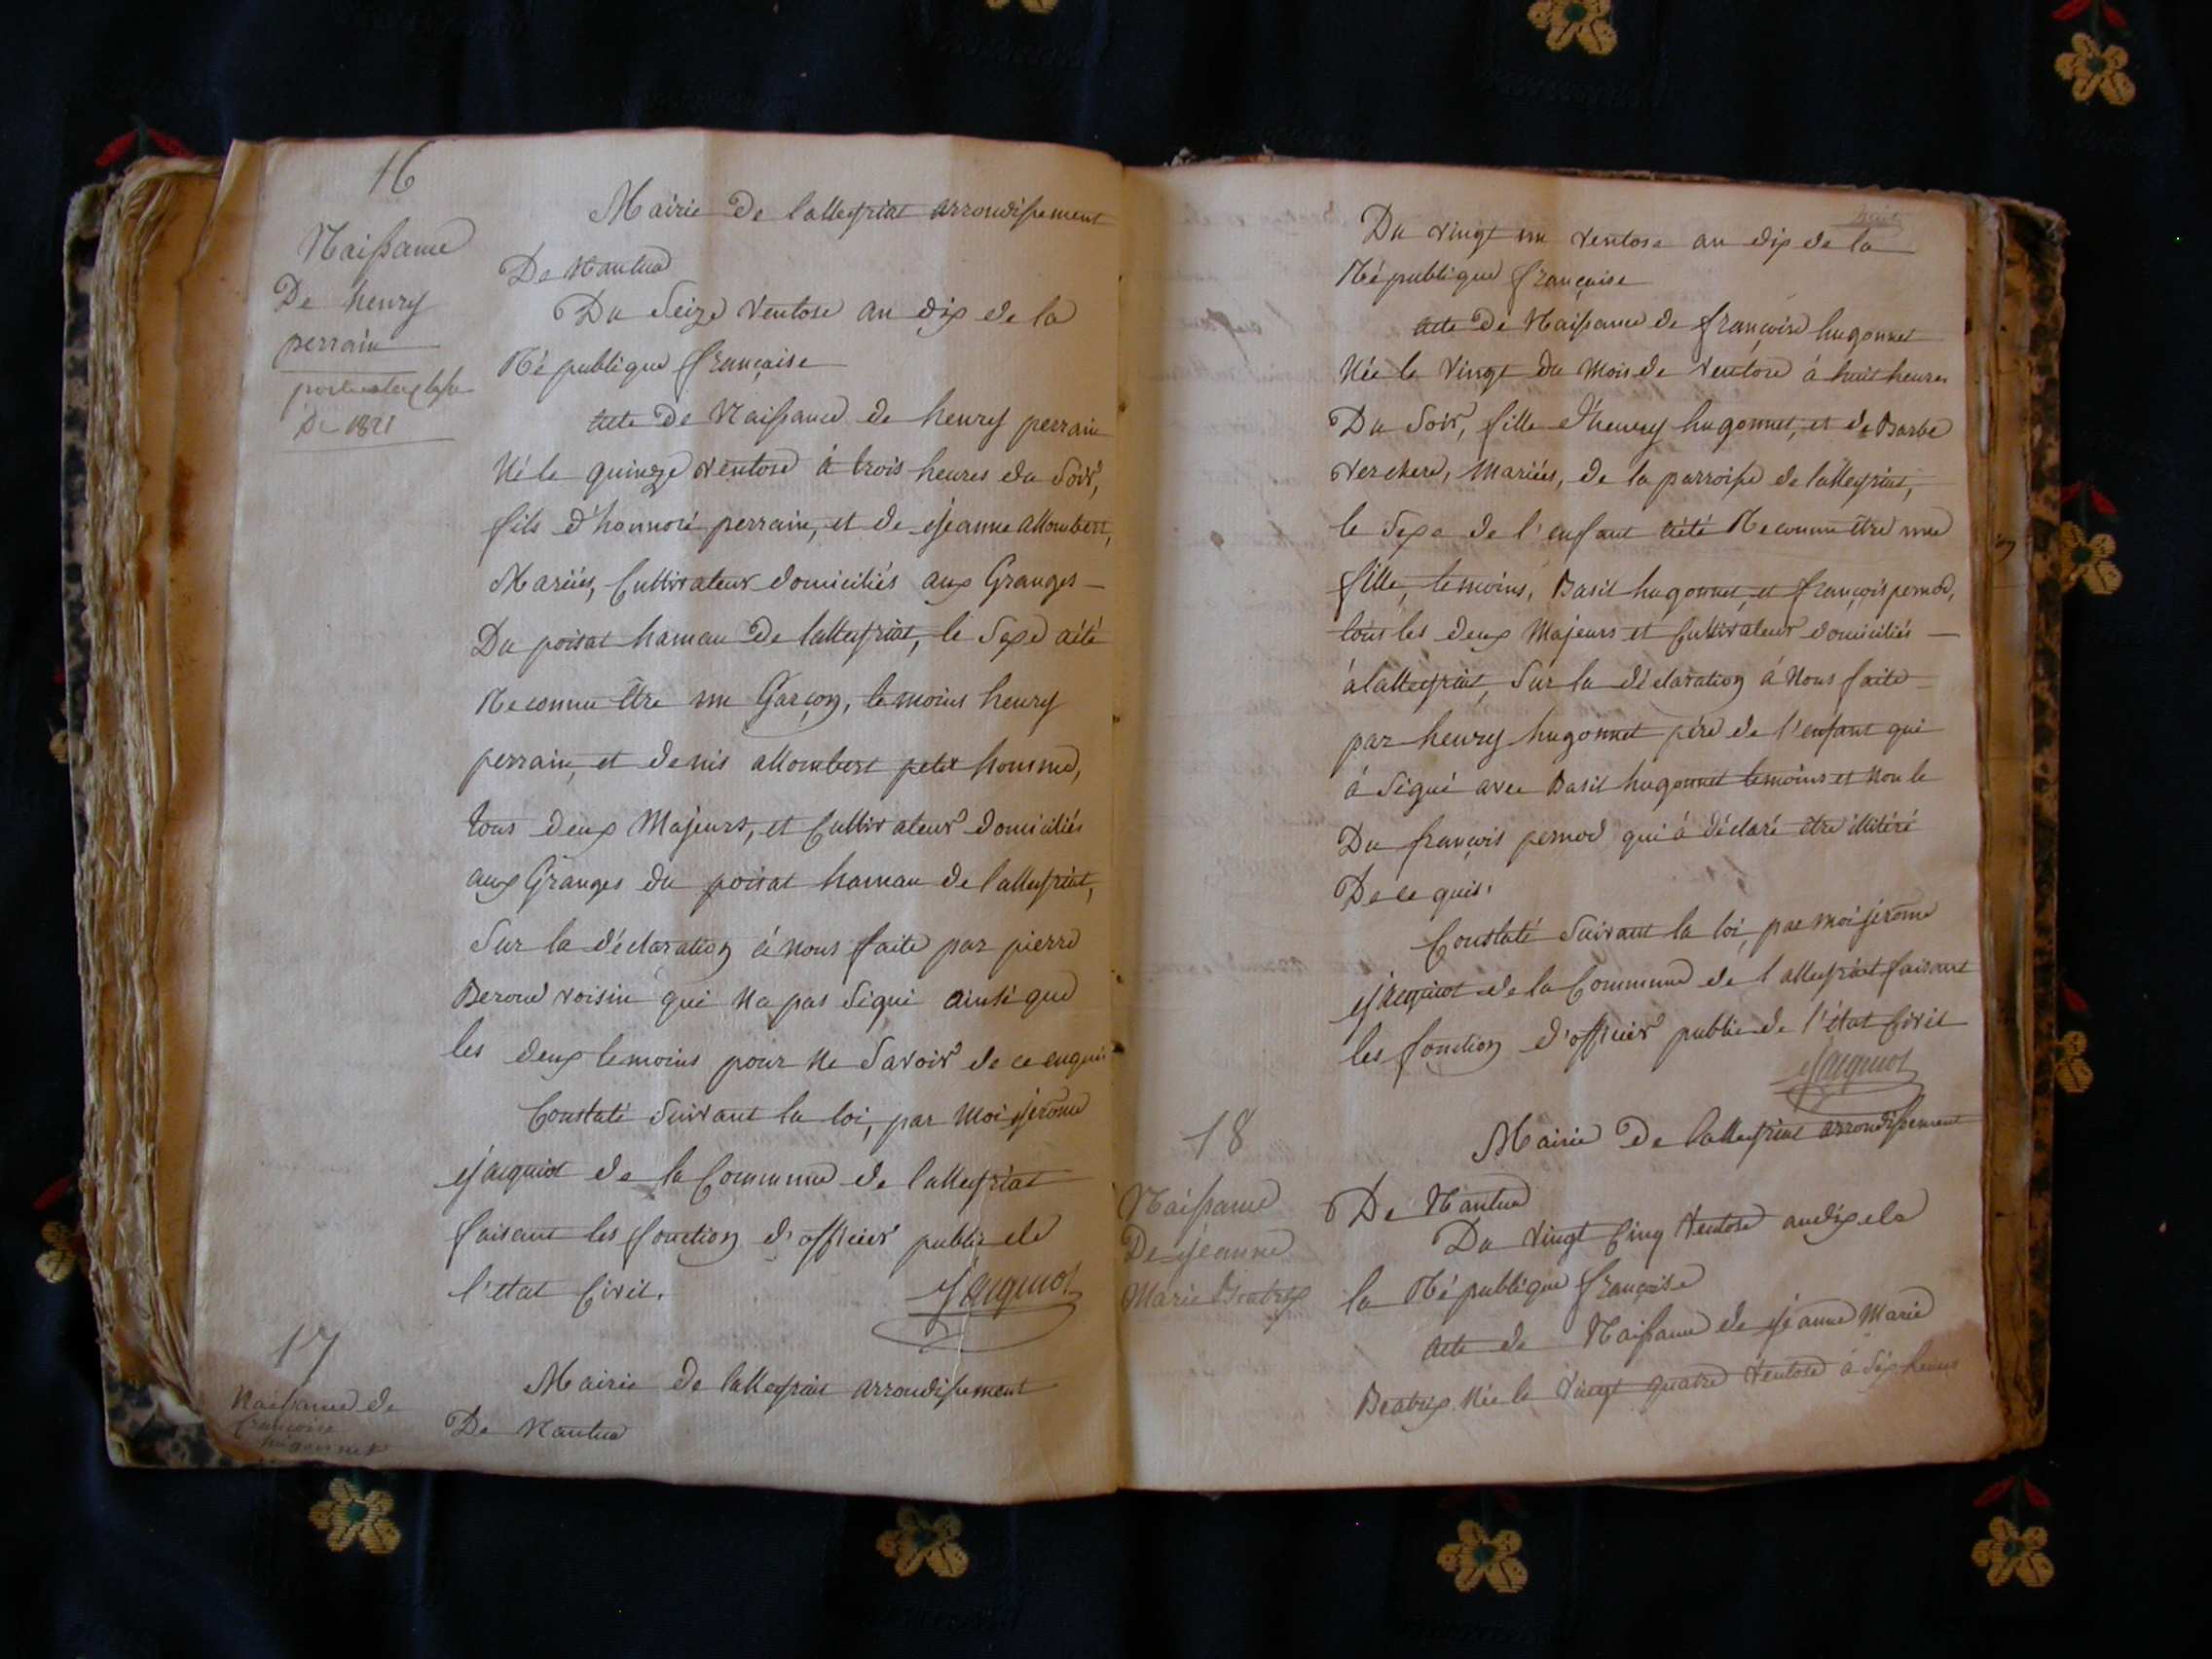 16
Mairie De lalleyriat arrondissement
De Nantua
Naissance
De henry
perrain
porté
De 1821
Du Seize Ventose an dix de la
République française
Acte De Naissance de henry perrain
Né le quinzze ventose à trois heures du Soir,
fils d'honnoré perrain, et de jeanne allombert,
Mariés, Cultivateur domiciliés aux Granges
Du poisat hamau De lalleyriat, le Sexe aété
Reconnu Être un Garçon, temoins henry
perrain, et denis allombert petit homme,
tous deux Majeurs, et Cultivateur domiciliés
aux Granges du poisat hamau de lalleyriat,
Sur la déclaration à nous faite par pierre
Beroud voisin qui Na pas Signi ainsi que
les deux temoins pour Ne Savoir de ce enquis
Constaté Suivant la loi, par Moi jérome
jacquiot de la Commune de lalleyriat
faisant les fonction d'officier public de
l'état Civil.
Jacquiot
17
Mairie de lalleyriat arrondissement
De Nantua
Naissance de
françoise
hugonnet
huit
Du vingt un ventose an dix de la
République française
Acte De Naissance de françoise hugonnet
Née le vingt du Mois de Ventose à huit heures
Du Soir, fille d'henry hugonnet, et de Barbe
Verchere, Mariées, de la parroisse de lalleyriat,
le Sexe de l'enfant aété Reconnu être une
fille, temoins, Basil hugonnet, et françois pernod,
tous les deux Majeurs et Cultivateur domiciliés
à lalleyriat, Sur la déclaration à Nous faite
par henry hugonnet pére de l'enfant qui
à Signé avec Basil hugonnet temoins et Non le
Du françois pernod qui à déclaré être illitéré
De ce quis.
Constaté Suivant la loi, par moi jérome
jacquiot de la Commune de lalleyriat faisant
les fonction d'officier public de l'état Civil
Jacquiot
18
Mairie De lalleyriat arrondissement
De Nantua
Naissance
De jeanne
Marie Beatrix
Du vingt Cinq Ventose an dix de
la République française
Acte de Naissance de jeanne Marie
Beatrix Née le Vingt quatre Ventose à Six heures